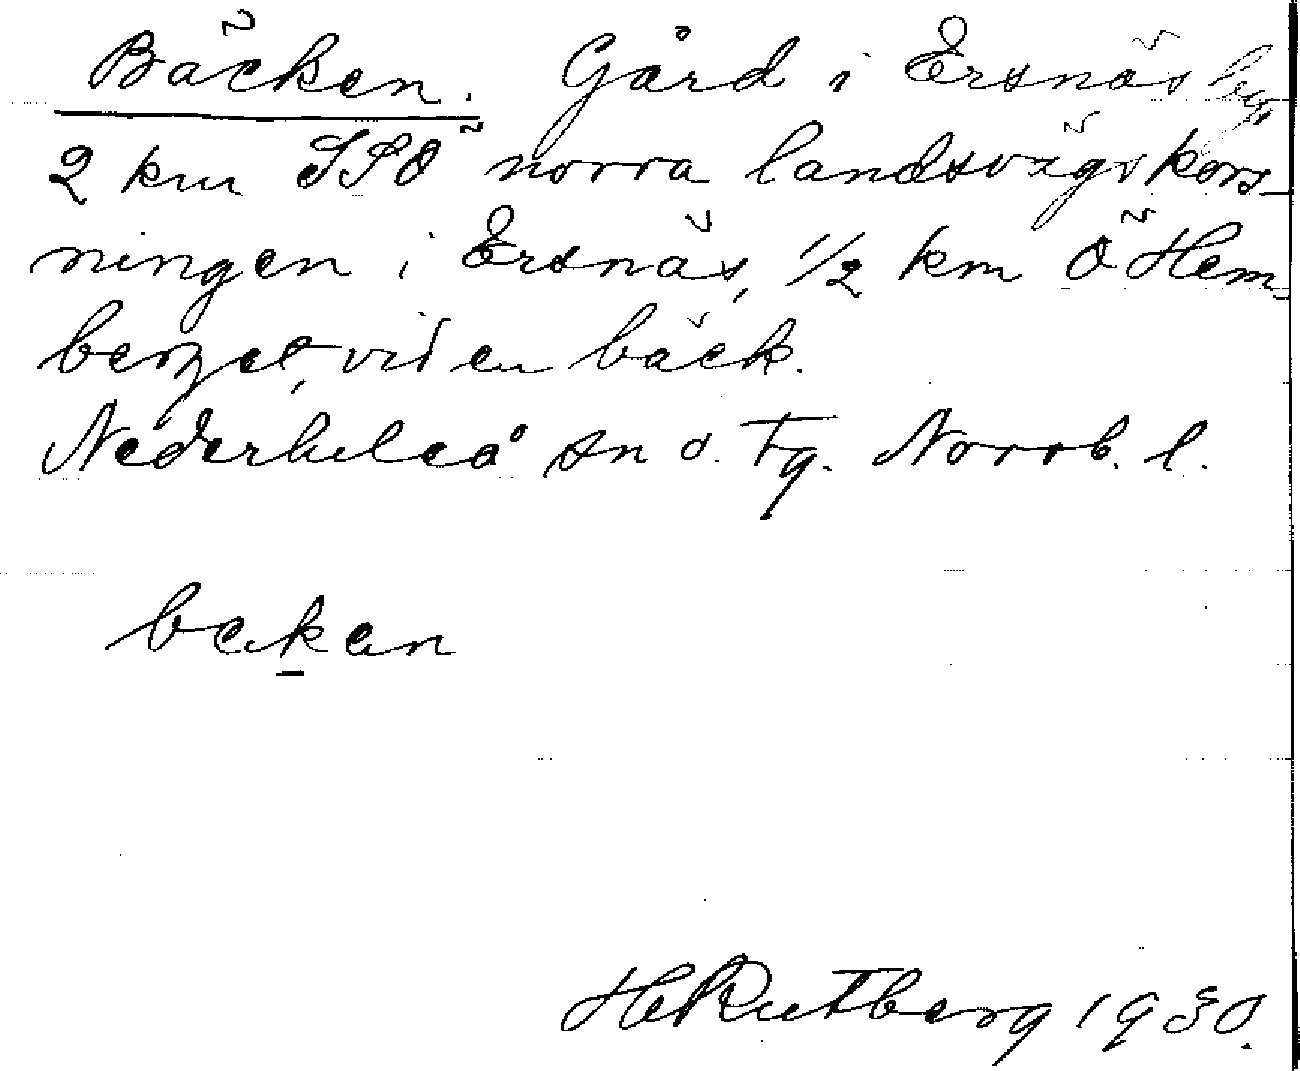 Bäcken. Gård i Ersnäs by,
2 km SSÖ norra landsvägskors-
ningen i Ersnäs, 1/2 km Ö Hem-
berget, vid en bäck.
Nederluleå sn o. tg. Norrb. l.
beken
HRutberg 1930.